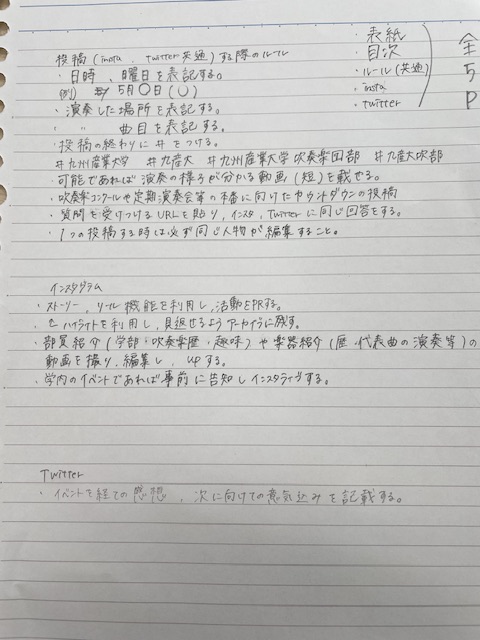 投稿(insta、twitter共通)する際のルール
・日時、曜日を表記する。
例) 5月〇日(〇)
・演奏した場所を表記する。
・ 〃 曲目を表記する。
・投稿の終わりに#をつける。
#九州産業大学 #九産大 #九州産業大学吹奏楽団部 #九産大吹部
・可能であれば演奏の様子が分かる動画(短)を載せる。
・吹奏楽コンクールや定期演奏会等の本番に向けたカウントダウンの投稿
・質問を受けつけるURLを貼り、インスタ、Twitterに同じ回答をする。
・1つの投稿する時は必ず同じ人物が編集すること。
・表紙
・目次
・ルール(共通)
・insta
・twitter
全
5
P
インスタグラム
・ストーリー、リール機能を利用し、活動をPRする。
・ハイライトを利用し、見返せるようアーカイブに残す。
・部員紹介(学部・吹奏楽歴・趣味)や楽器紹介(歴・代表曲の演奏等)の
動画を撮り、編集し、upする。
・学内のイベントであれば事前に告知しインスタライブする。
Twitter
・イベントを経ての感想、次に向けての意気込みを記載する。